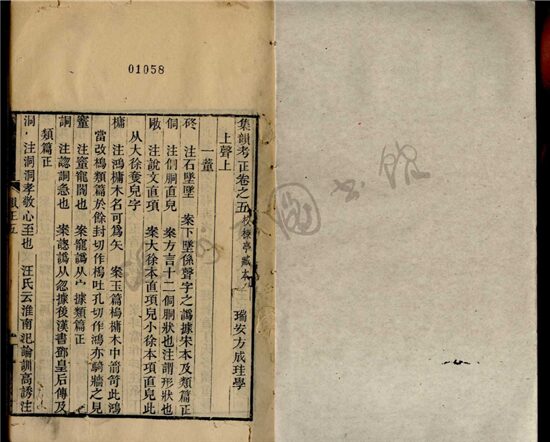 01058
集韻考正卷之五
瑞安方成珪學
上聲上
一董
注石墜墜 案下墜係聲字之譌據宋本及類篇正
侗 注侗侗直皃 案方言十二侗胴狀也注謂形狀也
注說文直項 案大徐本直項皃字小徐本項直皃此
从大徐奪皃字
注鴻 木名可為矢 案玉篇 木中箭笴此鴻
當改 類篇於餘封切作 吐孔切作鴻亦騎牆之見
注 寵闥也 案寵譌从宀據類篇正
詷 注 詷急也 案 譌从忽據後漢書鄧皇后傳及
類篇正
洞 注洞洞孝敬心至也 汪氏云淮南氾論訓高誘注
圖書館